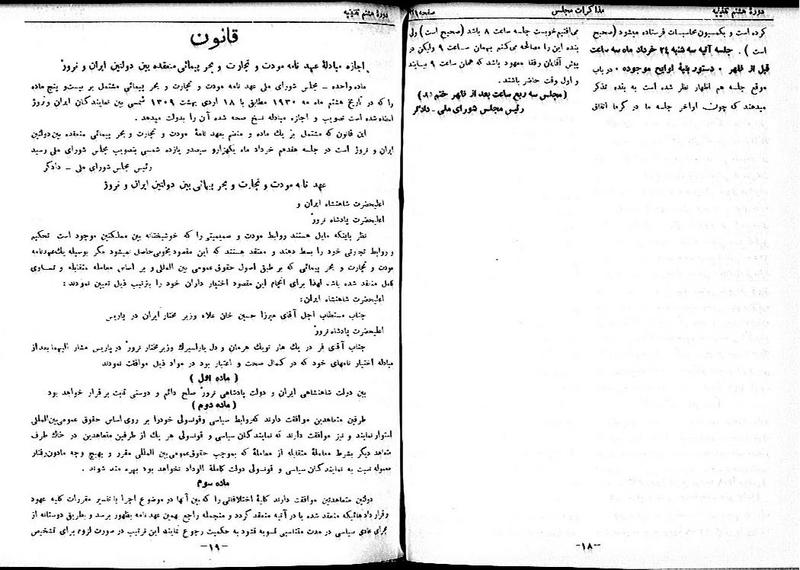 دورهٔ هشتم تقنینیه
مذاکرات مجلس
صفحه ۲۱
کرده است و بکمسیون محاسبات فرستاده میشود (صحیح
است) . جلسه آتیه سه شنبه ۲۴ خرداد ماه سه ساعت
قبل از ظهر . دستور بقیه لوایح موجوده . در باب
موقع جلسه هم اظهار نظر شده است به بنده تذکر
میدهند که چون اواخر جلسه ما در گرما اتفاق
میافتد خوبست جلسه ساعت ۸ باشد (صحیح است) ولی
بنده این را مصالحه می‌کنم بهمان ساعت ۹ ولیکن در
پیش آقایان رفقا معهود باشد که همان ساعت ۹ بیایند
و اول وقت حاضر باشند .
(مجلس سه ربع ساعت بعد از ظهر ختم شد)
رئیس مجلس شورای ملی ـ دادگر
ـ ۱۸ ـ
دورهٔ هشتم تقنینیه
قانون
اجازه مبادلهٔ عهد نامه مودت و تجارت و بحر پیمائی منعقده بین دولتین ایران و نروژ
ماده واحده ـ مجلس شورای ملی عهد نامه مودت و تجارت و بحر پیمائی مشتمل بر بیست و پنج ماده
را که در تاریخ هشتم ماه مه ۱۹۳۰ مطابق با ۱۸ اردی بهشت ۱۳۰۹ شمسی بین نمایندگان ایران و نروژ
امضاء شده است تصویب و اجازه مبادله نسخ صحه شده آن را بدولت میدهد .
این قانون که مشتمل بر یک ماده و متضم بعهد نامهٔ مودت و تجارت و بحر پیمائی منعقده بین دولتین
ایران و نروژ است در جلسه هفدهم خرداد ماه یکهزار و سیصد و یازده شمسی بتصویب مجلس شورای ملی رسید
رئیس مجلس شورای ملی ـ دادگر
عهد نامه مودت و تجارت و بحر پیمائی بین دولتین ایران و نروژ
اعلیحضرت شاهنشاه ایران و
اعلیحضرت پادشاه نروژ
نظر باینکه مایل هستند روابط مودت و صمیمیتی را که خوشبختانه بین مملکتین موجود است تحکیم
و روابط تجارتی خود را بسط دهند و معتقد هستند که این مقصود بخوبی حاصل نمیشود مگر بوسیله یک عهدنامه
مودت و تجارت و بحر پیمائی که بر طبق اصول حقوق عمومی بین المللی و بر اساس معامله متقابله و تساوی
کامل منعقد شده باشد لهذا برای انجام این مقصود اختیار داران خود را بترتیب ذیل تعیین نمودند :
اعلیحضرت شاهنشاه ایران :
جناب مستطاب اجل آقای میرزا حسین خان علاء وزیر مختار ایران در پاریس
اعلیحضرت پادشاه نروژ
جناب آقای فر در یک هار تویک هرمان و دل یارلسبرک وزیر مختار نروژ در پاریس مشار الیهما بعد از
مبادله اختیار نامهای خود که در کمال صحت و اعتبار بود در مواد ذیل موافقت نمودند
(ماده اول)
بین دولت شاهنشاهی ایران و دولت پادشاهی نروژ صلح دائم و دوستی ثابت برقرار خواهد بود
(ماده دوم)
طرفین متعاهدین موافقت دارند که روابط سیاسی و قونسولی خود را بر روی اساس حقوق عمومی بین‌المللی
استوار نمایند و نیز موافقت دارند که نمایندگان سیاسی و قونسولی هر یک از طرفین متعاهدین در خاک طرف
متعاهد دیگر بشرط معاملهٔ متقابله از معاملهٔ که بموجب حقوق عمومی بین المللی مقرر و بهیچ وجه مادون رفتار
معموله نسبت به نمایندگان سیاسی و قونسولی دولت کاملة الوداد نخواهد بود بهره مند شوند .
ماده سوم
دولتین متعاهدین موافقت دارند کلیهٔ اختلافاتی را که بین آنها در موضوع اجرا یا تفسیر مقررات کلیه عهود
و قراردادهائیکه منعقد شده یا در آتیه منعقد گردد و منجمله راجع بهمین عهد نامه بظهور برسد و بطریق دوستانه از
مجرای عادی سیاسی در مدت متناسبی تسویه نشود به حکمیت رجوع نمایند این ترتیب در صورت لزوم برای تشخیص
ـ ۱۹ ـ